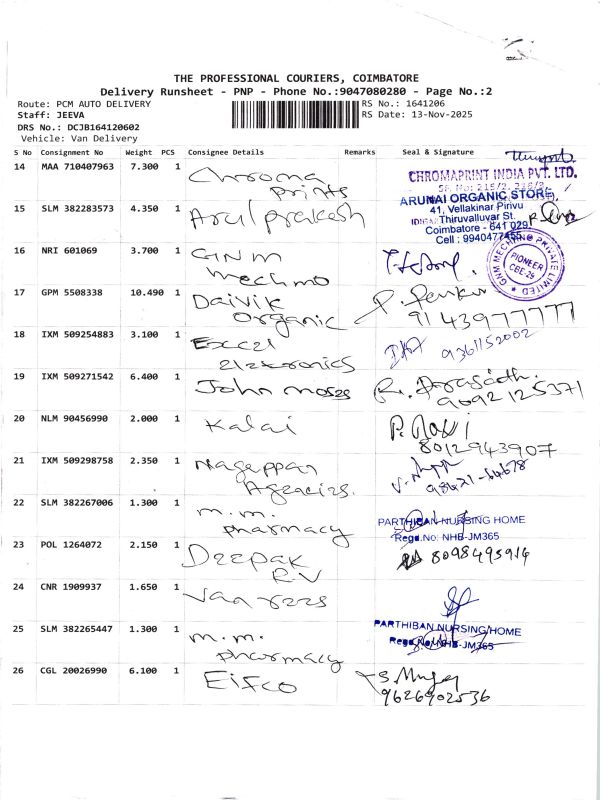 THE PROFESSIONAL COURIERS, COIMBATORE
Delivery Runsheet - PNP - Phone No.:9047080280 - Page No.:2
Route: PCM AUTO DELIVERY
RS No.: 1641206
Staff: JEEVA
RS Date: 13-Nov-2025
DRS No.: DCJB164120602
Vehicle: Van Delivery
S No Consignment No Weight PCS Consignee Details Remarks Seal & Signature
14 MAA 710407963 7.300 1 Chroma
prints
CHROMAPRINT INDIA PVT. LTD.
15 SLM 382283573 4.350 1 Arulprakesh
ARUNAI ORGANIC STORE,
41, Vellakinar Pirivu
Thiruvalluvar St.
Coimbatore - 641 029
Cell : 9940477455
16 NRI 601069 3.700 1 GNM
mechmo
GNM MECHMO PRIVATE LIMITED
PIONEER
CBE-25
17 GPM 5508338 10.490 1 Daivik
Organic
9143977777
18 IXM 509254883 3.100 1 Excel
Elzkronics
9361152002
19 IXM 509271542 6.400 1 John moszs
R. Prasadh.
9092125371
20 NLM 90456990 2.000 1 Kalai
P. Ravi
8012943907
21 IXM 509298758 2.350 1 Nagappan
Agencizs.
98421-64678
22 SLM 382267006 1.300 1 m.m.
pharmacy
PARTHIBAN NURSING HOME
Regd.No: NHB-JM365
23 POL 1264072 2.150 1 Dzzpak
RV
8098495914
24 CNR 1909937 1.650 1
25 SLM 382265447 1.300 1 m.m.
pharmacy
PARTHIBAN NURSING HOME
Regd.No: NHB-JM365
26 CGL 20026990 6.100 1 Eifco
9626902536